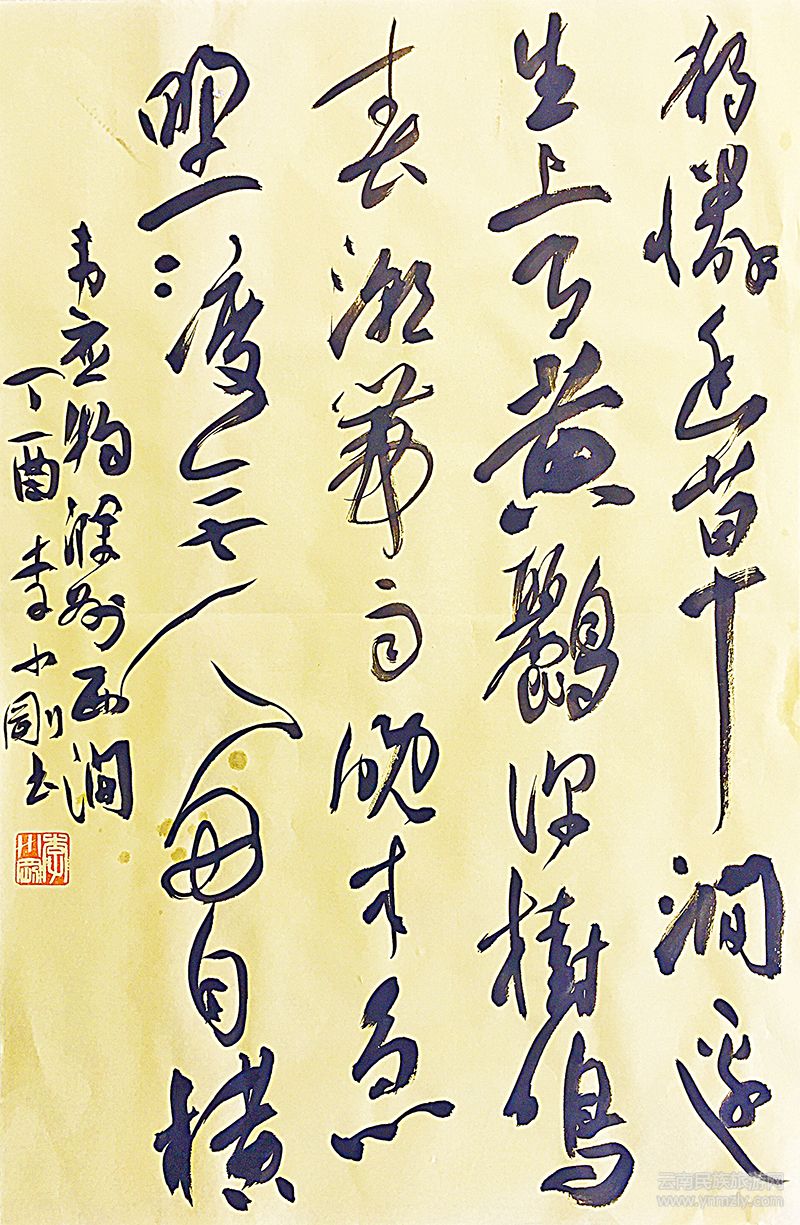 獨憐幽草澗邊
生上有黃鸝深樹鳴
春潮帶雨晚來急
野渡無人舟自橫
韋應物滁州西澗
丁酉李小剛書
云南民族旅游网
www.ynmzly.com